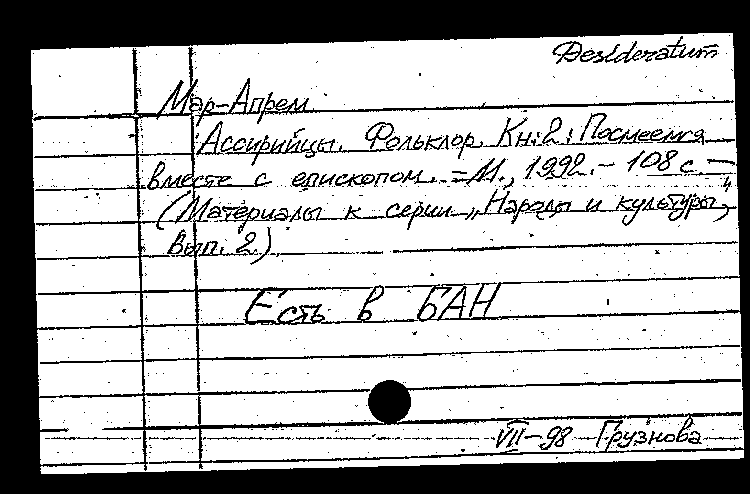 Desideratum
Мар-Апрем
Ассирийцы. Фольклор. Кн. 2: Посмеемся
вместе с епископом. - М., 1992. - 108 с. -
(Материалы к серии „Народы и культуры",
Вып. 2.)
Есть в БАН
VII-98 Грузнова